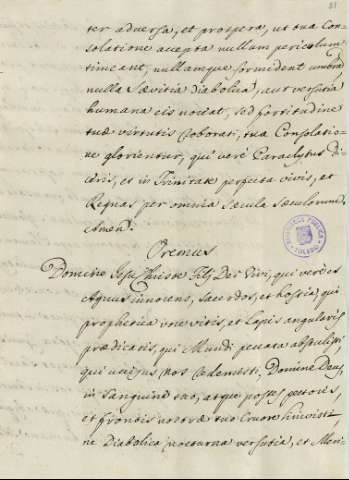 ter adversa, et prospera, ut tua Con-
solatione accepta nullum periculum
timeant, nullamque formident umbrã,
nulla Sævitia diabolica, aut versutia
humana eis noceat, sed fortitudine
tuæ virtutis Roborati, tua Consolatio-
ne glorientur, qui verè Paraclytus Di-
ceris, et in Trinitate perfecta vivis, et
Regnas per omnia Sæcula Sæculorum.
Amen.
Oremus
Domine Jesu Christe Filÿ Dei Vivi, qui verè es
Agnus innocens, Sacerdos, et hostia, qui
prophetica voce vitis, et Lapis angularis
prædicatis, qui Mundi peccata abstulisti
qui unijus nos Redemisti, Domine Deus,
in Sanguine tuo, atque postes pectoris,
et frontis nostræ tuo Cruore
ne Diabolica nocturna versutia, et Meri-